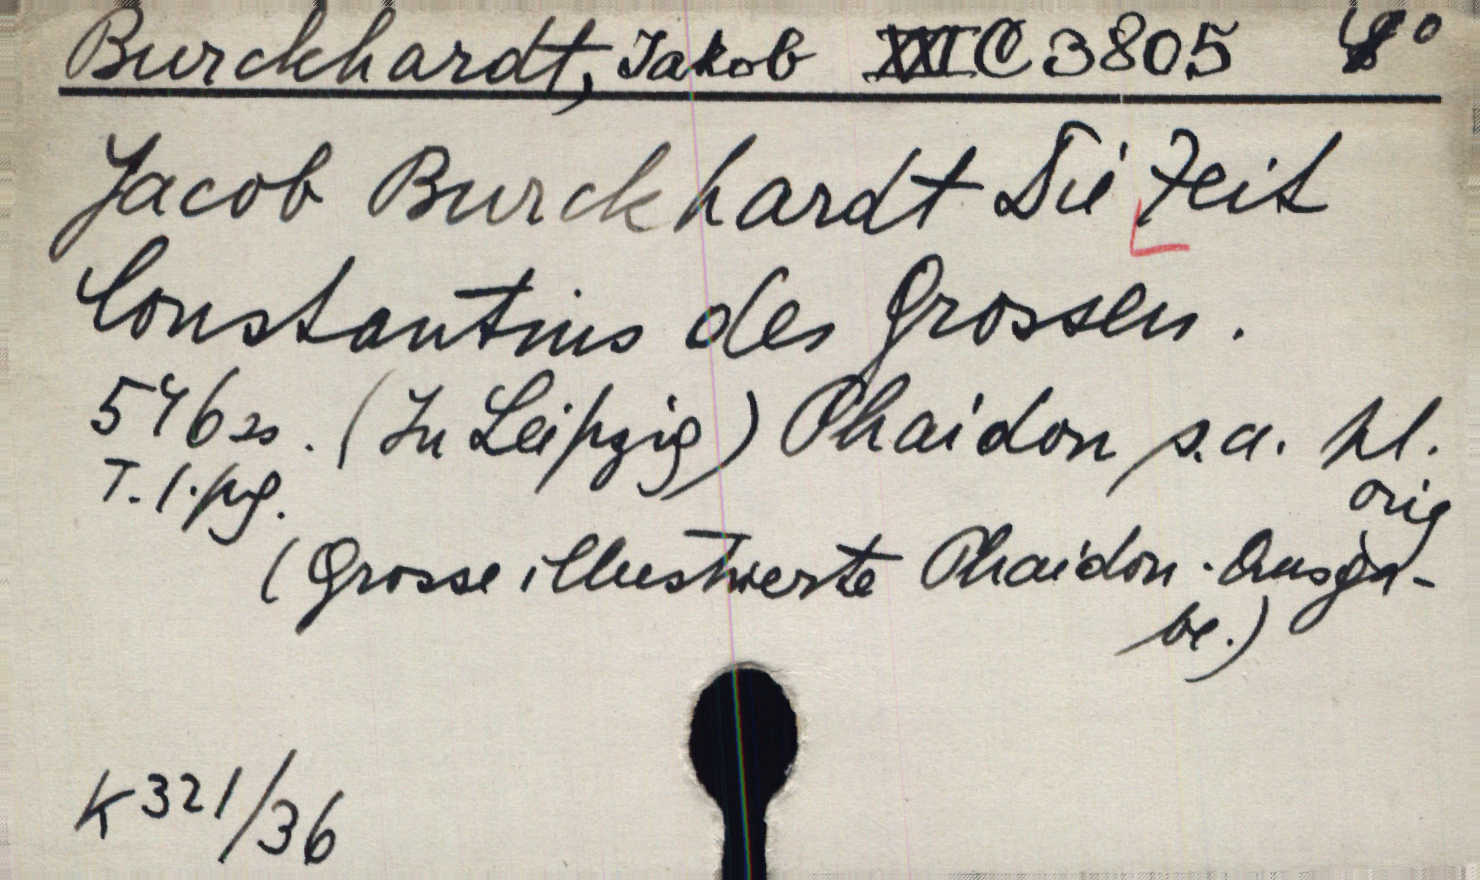 Burckhardt, Jakob XXI C 3805 8°
Jacob Burckhardt Die Zeit
Constantins des Grossen.
546 s. (In Leipzig) Phaidon s.a. kl.
T. 1. pg. orig
(Grosse illustrierte Phaidon-Ausga-
be.)
K 321/36